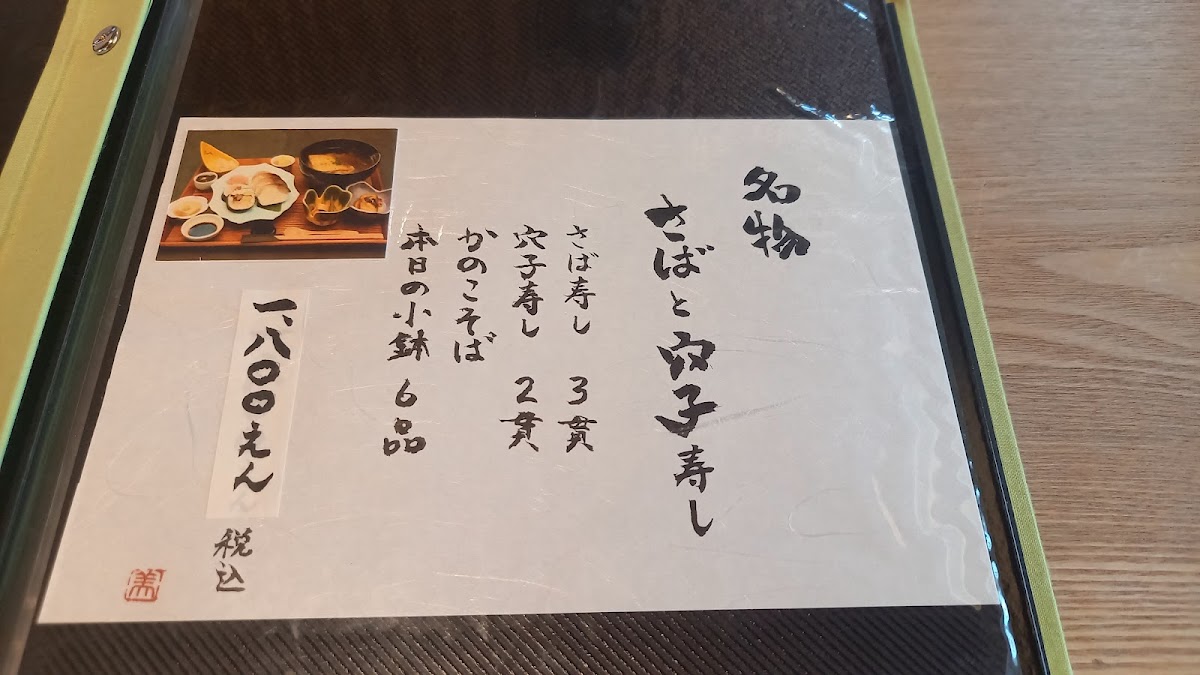 名物
さばと穴子寿し
さば寿し 3貫
穴子寿し 2貫
かのこそば
本日の小鉢 6品
一、八〇〇えん
税込
美